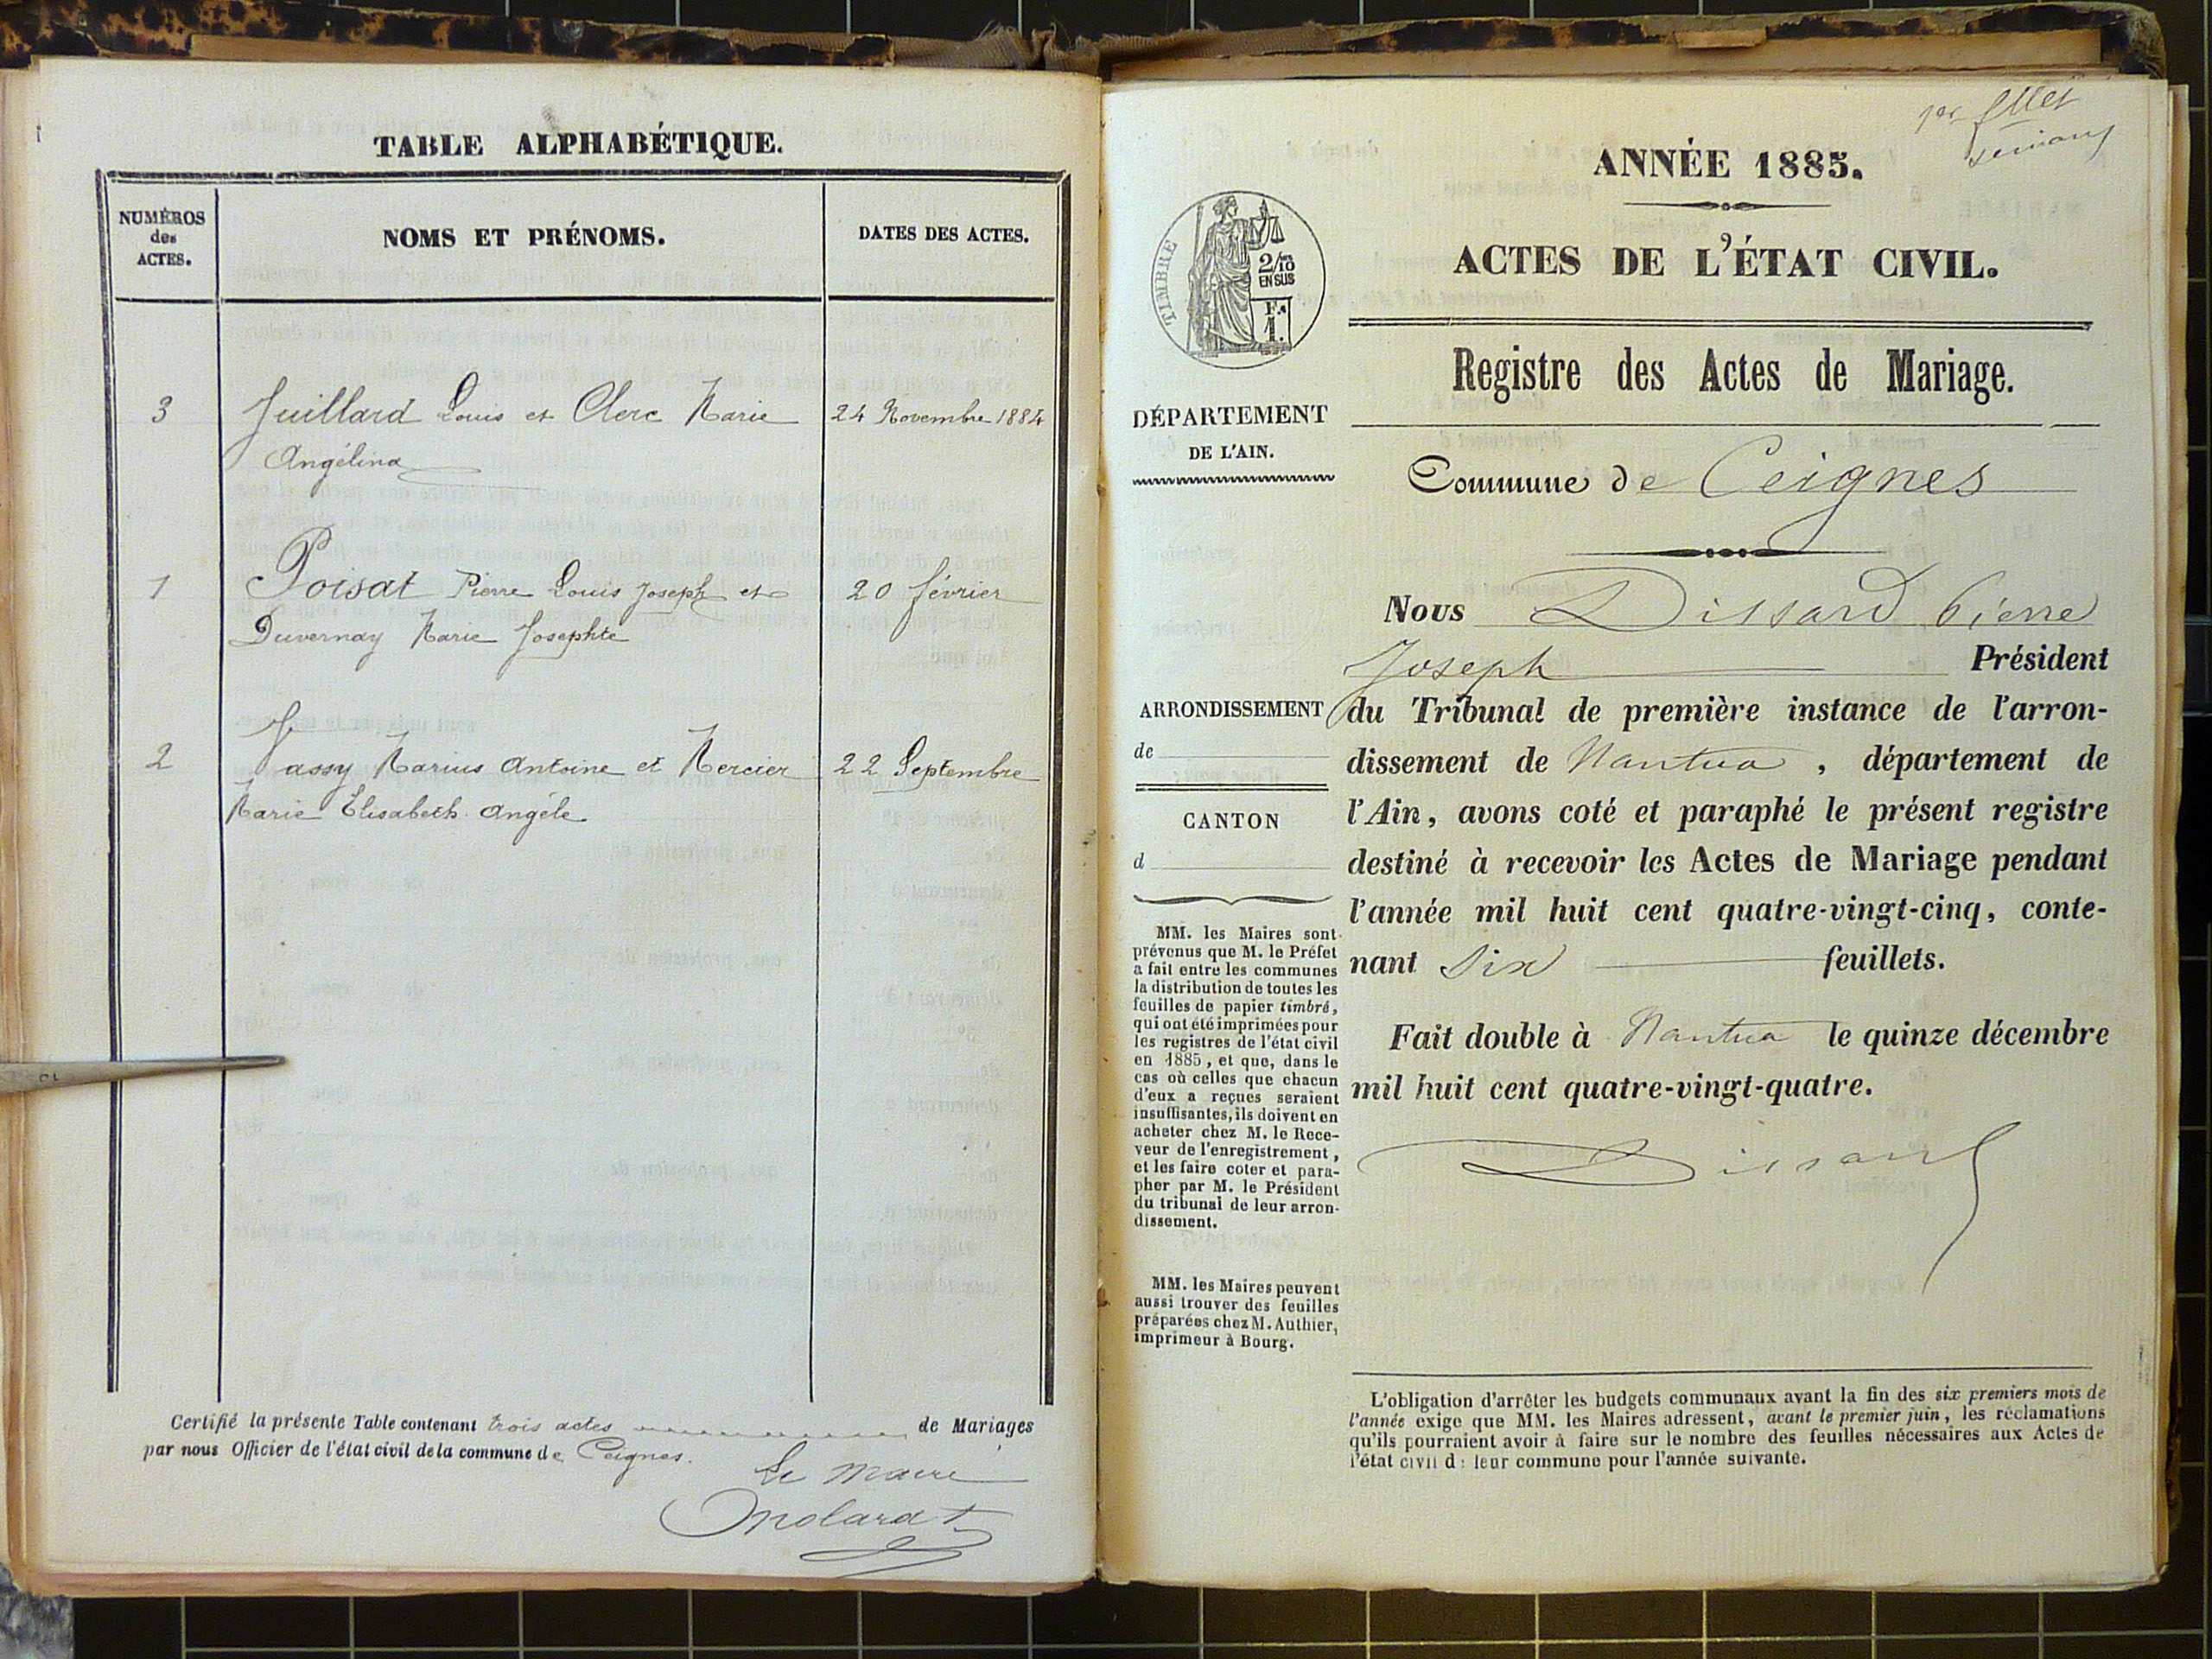 TABLE ALPHABÉTIQUE.
NUMÉROS
des
ACTES.
NOMS ET PRÉNOMS.
DATES DES ACTES.
3 Juillard Louis et Clerc Marie 24 Novembre 1884
Angélina
1 Poisat Pierre Louis Joseph et 20 février
Duvernay Marie Josephte
2 assy Marius Antoine et Mercier 22 Septembre
Marie Elisabeth Angéle
Certifié la présente Table contenant trois actes de Mariages
par nous Officier de l'état civil de la commune de Ceignes.
Le maire
Molard
1er
ANNÉE 1885.
ACTES DE L'ÉTAT CIVIL.
TIMBRE
2/10
EN SUS
F.
1.
Registre des Actes de Mariage.
DÉPARTEMENT
DE L'AIN.
Commune de Ceignes
Nous Dissard Pierre
Joseph Président
ARRONDISSEMENT
de
CANTON
d
du Tribunal de première instance de l'arron-
dissement de Nantua, département de
l'Ain, avons coté et paraphé le présent registre
destiné à recevoir les Actes de Mariage pendant
l'année mil huit cent quatre-vingt-cinq, conte-
nant Six feuillets.
Fait double à Nantua le quinze décembre
mil huit cent quatre-vingt-quatre.
Dissard
MM. les Maires sont
prévenus que M. le Préfet
a fait entre les communes
la distribution de toutes les
feuilles de papier timbré,
qui ont été imprimées pour
les registres de l'état civil
en 1885, et que, dans le
cas où celles que chacun
d'eux a reçues seraient
insuffisantes, ils doivent en
acheter chez M. le Rece-
veur de l'enregistrement,
et les faire coter et para-
pher par M. le Président
du tribunal de leur arron-
dissement.
MM. les Maires peuvent
aussi trouver des feuilles
préparées chez M. Authier,
imprimeur à Bourg.
L'obligation d'arrêter les budgets communaux avant la fin des six premiers mois de
l'année exige que MM. les Maires adressent, avant le premier juin, les réclamations
qu'ils pourraient avoir à faire sur le nombre des feuilles nécessaires aux Actes de
l'état civil de leur commune pour l'année suivante.